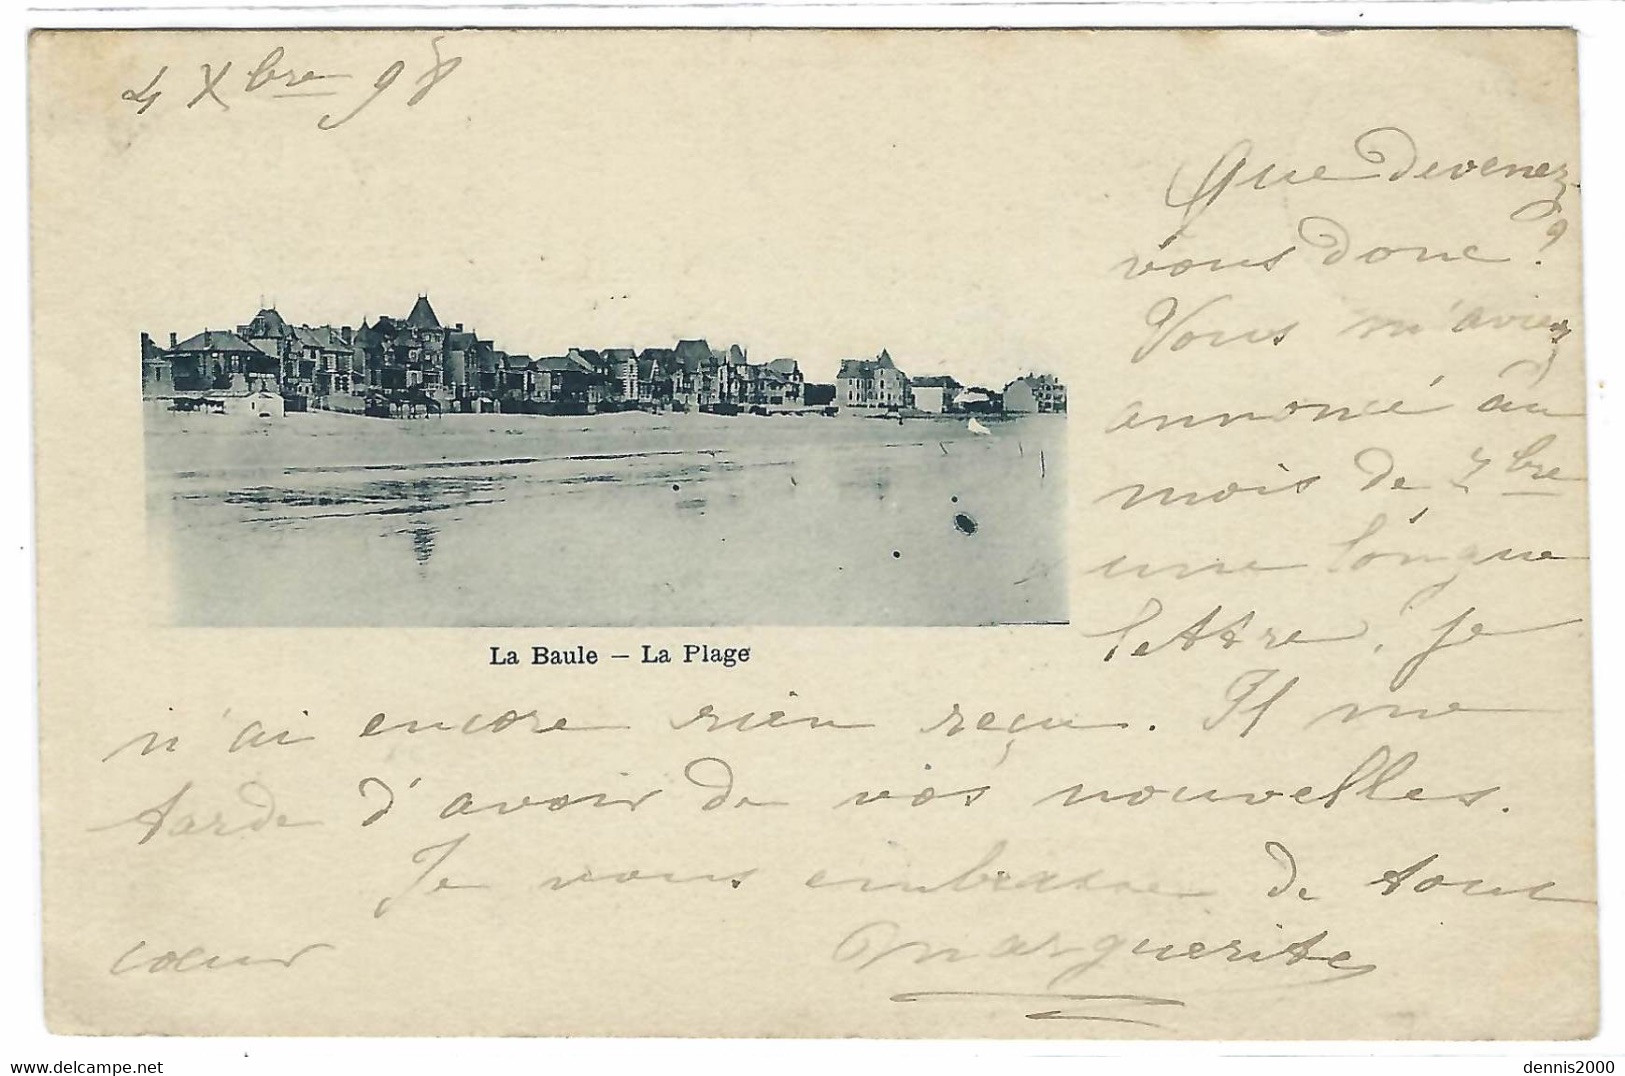 4 Xbre 98
Que devenez
vous donc?
Vous m'aviez
annoncé au
mois de 7bre
une longue
lettre, je
La Baule – La Plage
n'ai encore rien reçu. Il me
tarde d'avoir de vos nouvelles.
Je vous embrasse de tout
cœur Marguerite
delcampe.net
dennis2000